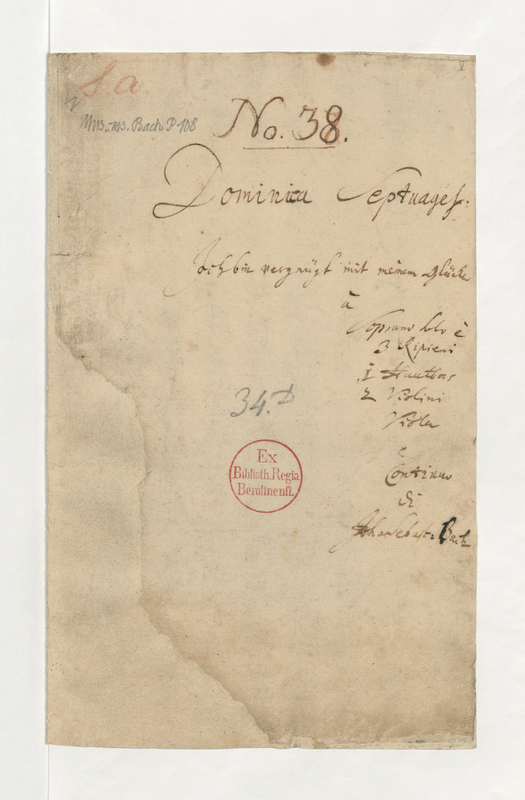 S. a.
V
Mus. ms. Bach P 108
No. 38.
Dominica Septuages.
Ich bin vergnügt mit meinem Glücke
à
Soprano solo è
3 Ripieni
1 Hautbois
2 Violini
Viola
e
Continuo
di
Joh. Sebast. Bach
34.
Ex
Biblioth. Regia
Berolinensi.